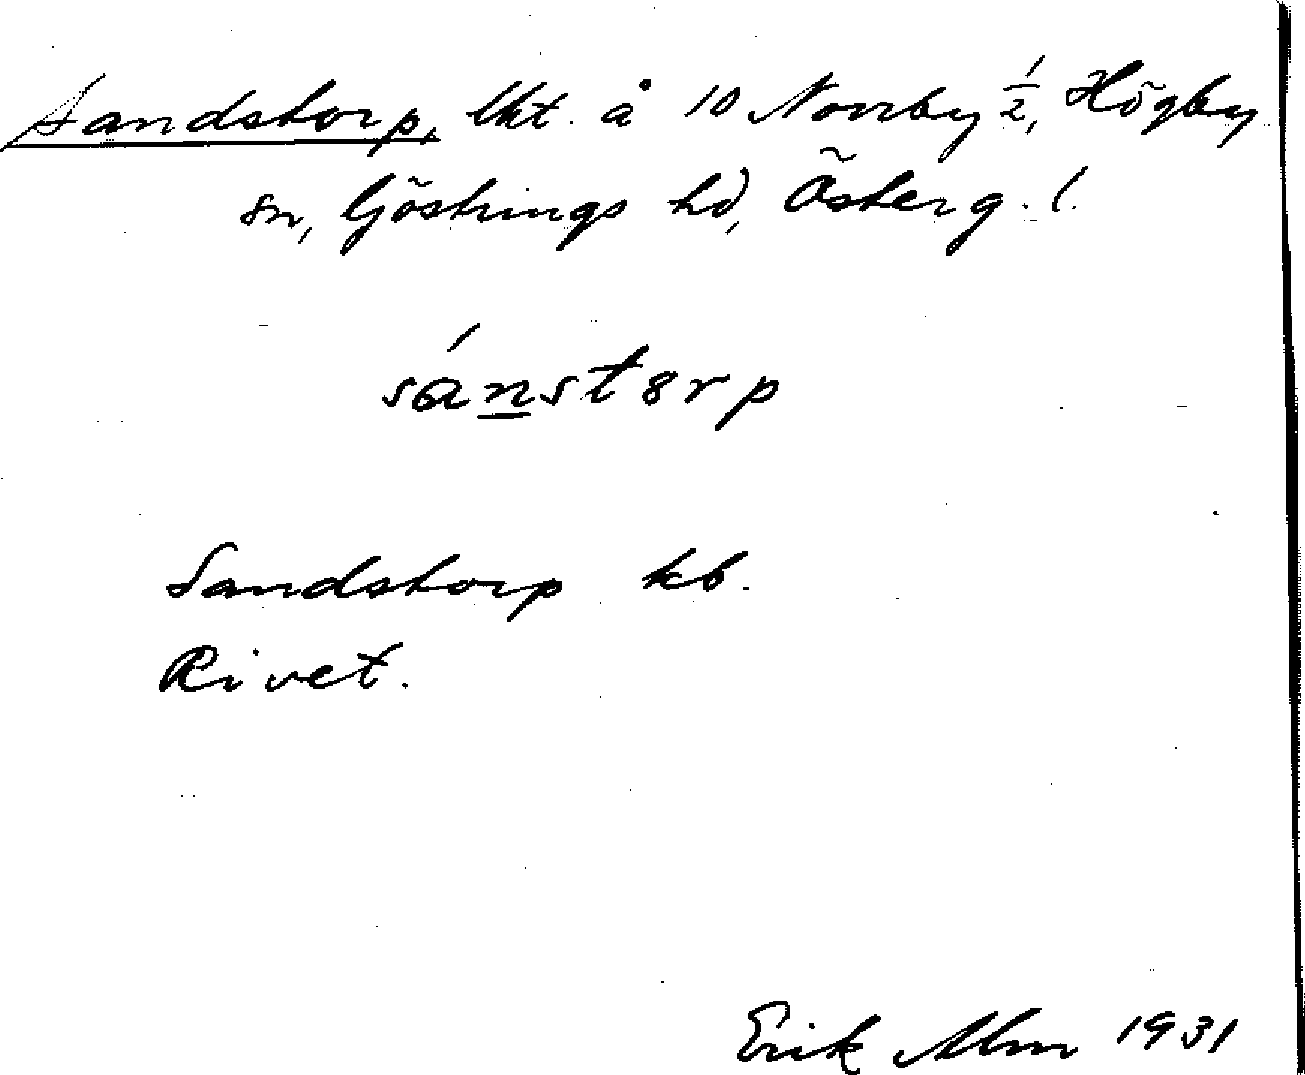 Sandstorp, lht. å 10 Norrby 1/2, Högby
sn, Göstrings hd, Österg. l.
sánstɞrp
Sandstorp kb.
Rivet.
Erik Alm 1931